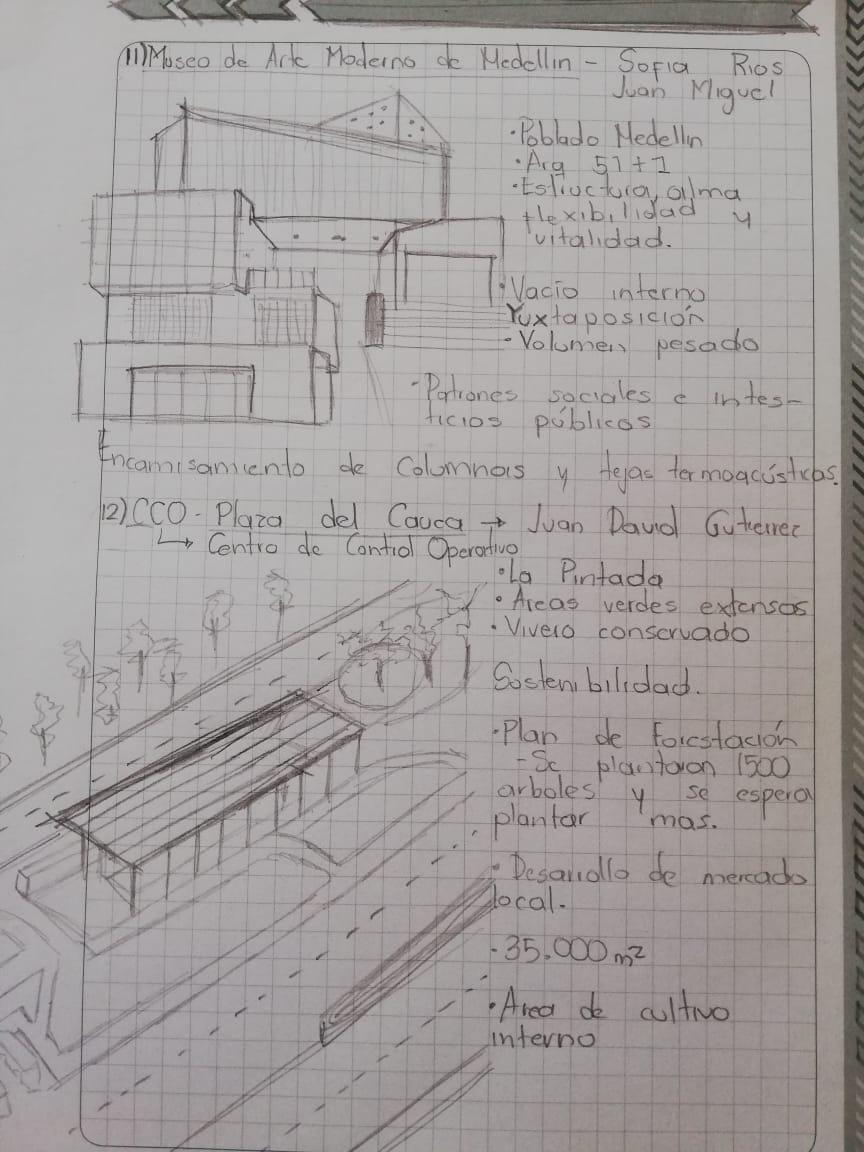 11) Museo de Arte Moderno de Medellin - Sofia Rios
Juan Miguel
• Poblado Medellin
• Arq 51+1
• Estructura, alma
flexibilidad y
vitalidad.
• Vacio interno
Yuxtaposición
- Volumen pesado
- Patrones sociales e inters-
ticios públicos
Encamisamiento de Columnas y tejas termoacústicas.
12) CCO - Plaza del Cauca → Juan David Gutierrez
↳ Centro de Control Operativo
• La Pintada
• Areas verdes extensas
• Vivero conservado
Sostenibilidad.
• Plan de Forestación
- Se plantaron 1500
arboles y se espera
plantar mas.
• Desarrollo de mercado
local.
- 35.000 m²
• Area de cultivo
interno